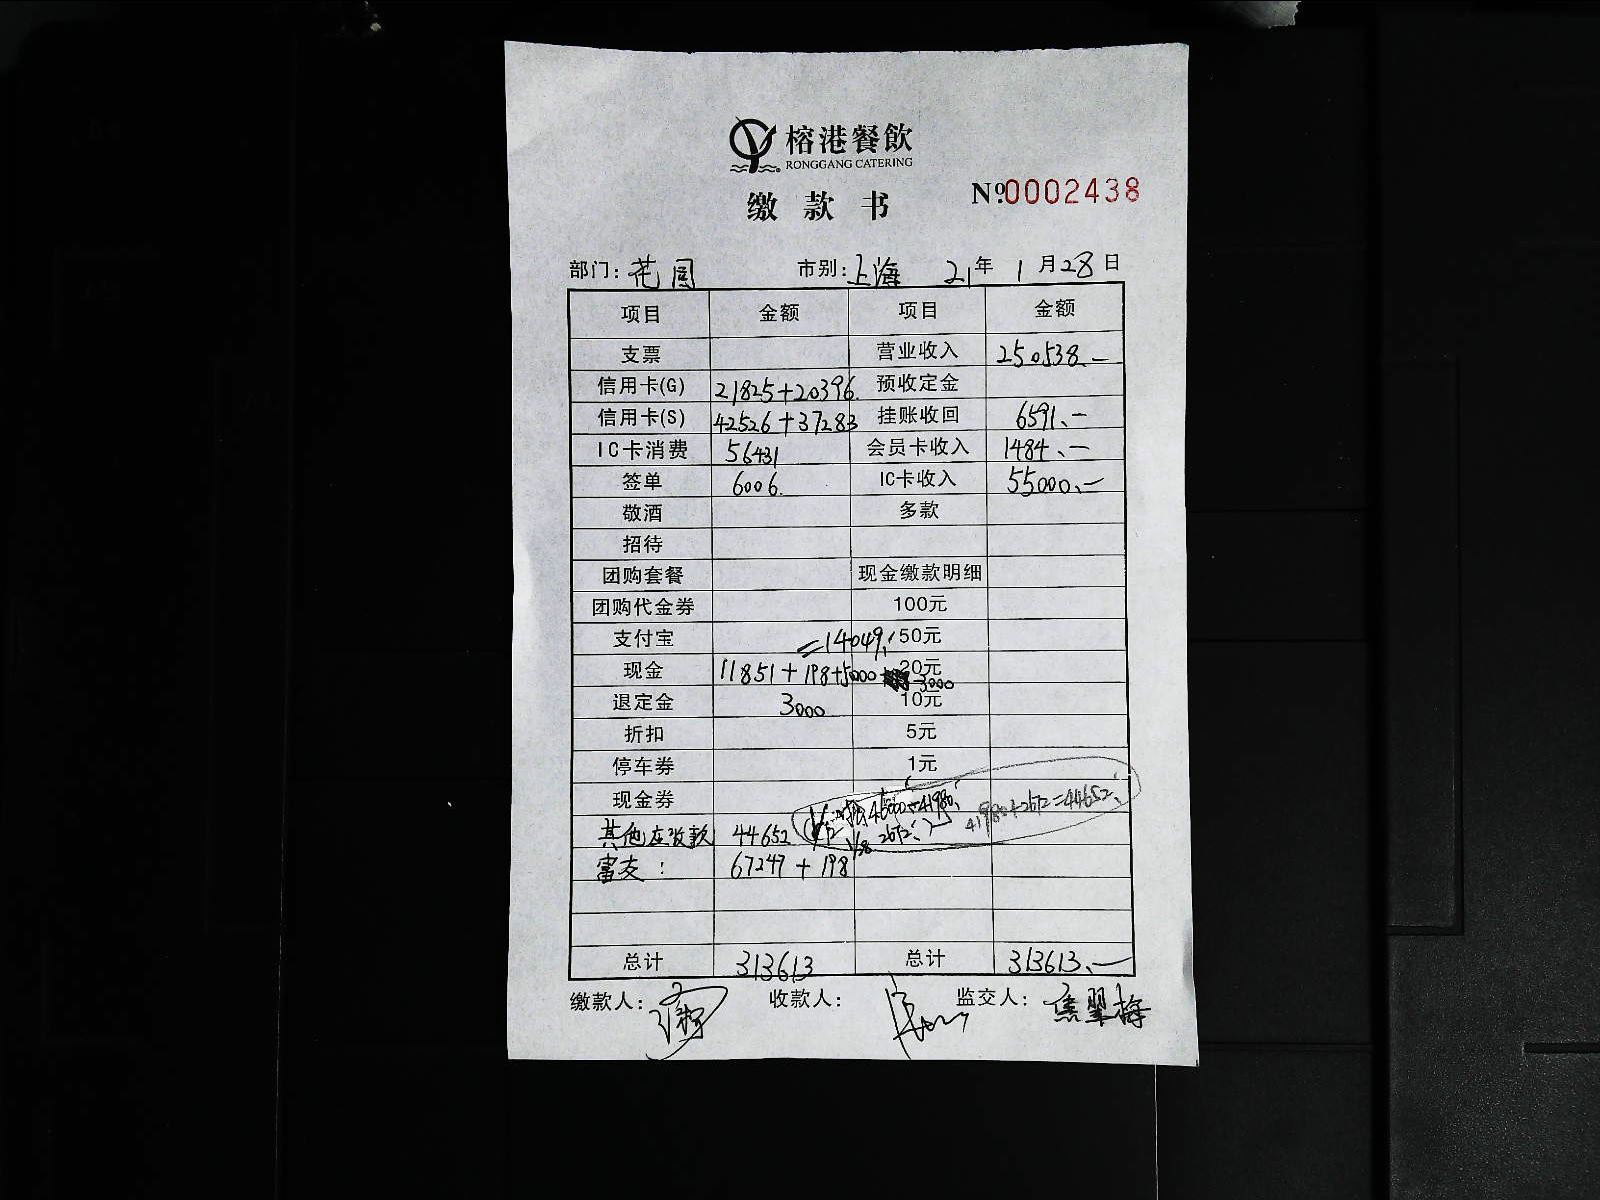 榕港餐飲
RONGGANG CATERING
缴款书 №0002438
部门: 花园 市别: 上海 21年 1月28日
项目 金额 项目 金额
支票 营业收入 250538.—
信用卡(G) 21825+20396. 预收定金
信用卡(S) 42526+37283 挂账收回 6591、—
IC卡消费 56431 会员卡收入 1484、—
签单 6006. IC卡收入 55000、—
敬酒 多款
招待
团购套餐 现金缴款明细
团购代金券 100元
支付宝 =14049, 50元
现金 11851+198+5000 -3000 20元
退定金 3000 10元
折扣 5元
停车券 1元
现金券 46000=41980, 41980+2672=44652,
其他应收款 44652 1/28 2672,
富友: 67247+198
总计 313613 总计 313613、—
缴款人: 收款人: 监交人: 焦翠梅